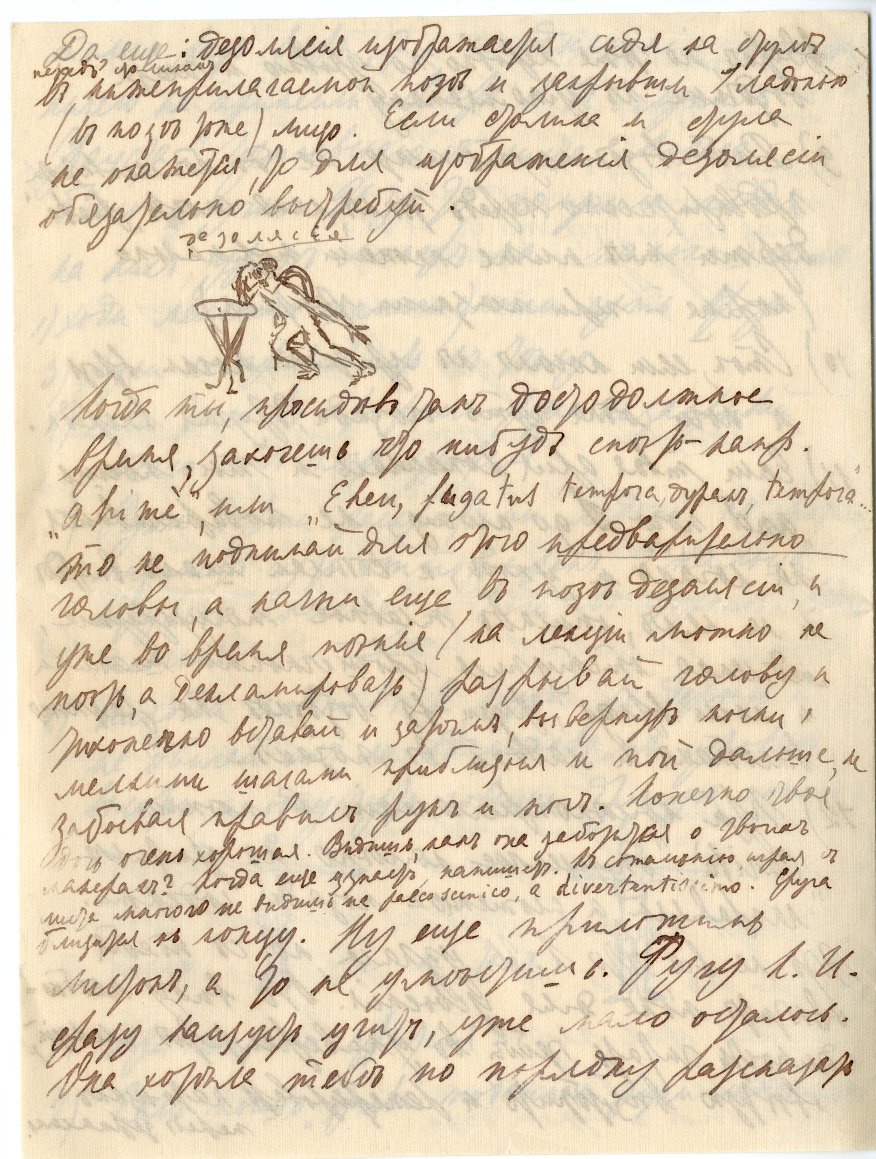 Да еще: дезолясiя изображается сидя на стулѣ
передъ столикомъ
въ нижеприлагаемой позѣ и закрывши ладонью
(въ позѣ тоже) лицо. Если столика и стула
не окажется, то для изображенiя дезолясiи
обязательно вытребуй.
дезолясiя
Когда ты, просидѣвъ такъ достодолжное
время, захочешь что нибудь спѣть – напр.
"ahimè", или „Eheu, fugatus tempora, дуракъ, tempora"...
то не поднимай для этого предварительно
головы, а начни еще въ позѣ дезолясiи, и
уже во время пѣнiя (на лекцiи можно не
пѣть, а декламировать) разрывай голову и
тихонечко вставай и затѣмъ, вывернувъ носки,
мелкими шагами приближься и пой дальше, не
забывая правилъ рукъ и ногъ. Конечно твоя
дочь очень хорошая. Видишь, какъ она заботится о твоихъ
манерахъ? Когда еще узнаетъ, напишетъ. Къ сожалѣнiю, играя съ
листа многого не видишь на palcoscenico, а divertentissimo. Фуга
близится къ концу. Ну еще приложишь
листокъ, а то не умѣстишь. Фугу К. И.
сразу кончу учить, уже мало осталось.
Она хотѣла тебѣ по порядку разсказать